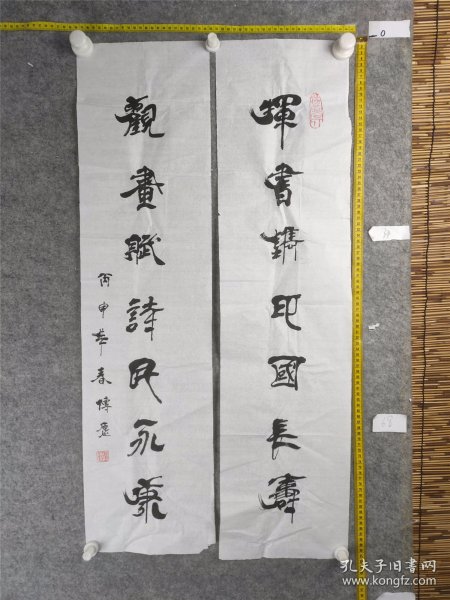 揮書鐫印國長壽
觀畫賦詩民永康
丙申年春
0
孔夫子旧书网
www.kongfz.com